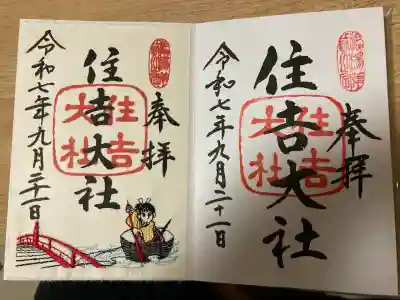 奉拝
住吉大社
住吉
大社
令和七年九月二十一日
奉拝
住吉大社
住吉
大社
令和七年九月二十一日